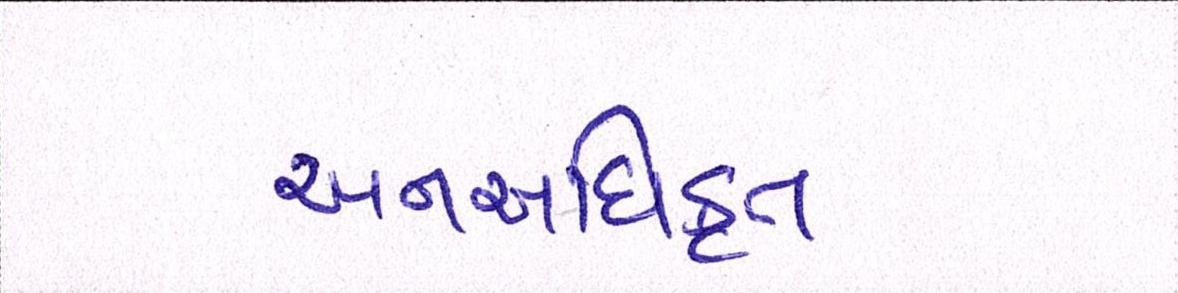 અનઅધિકૃત